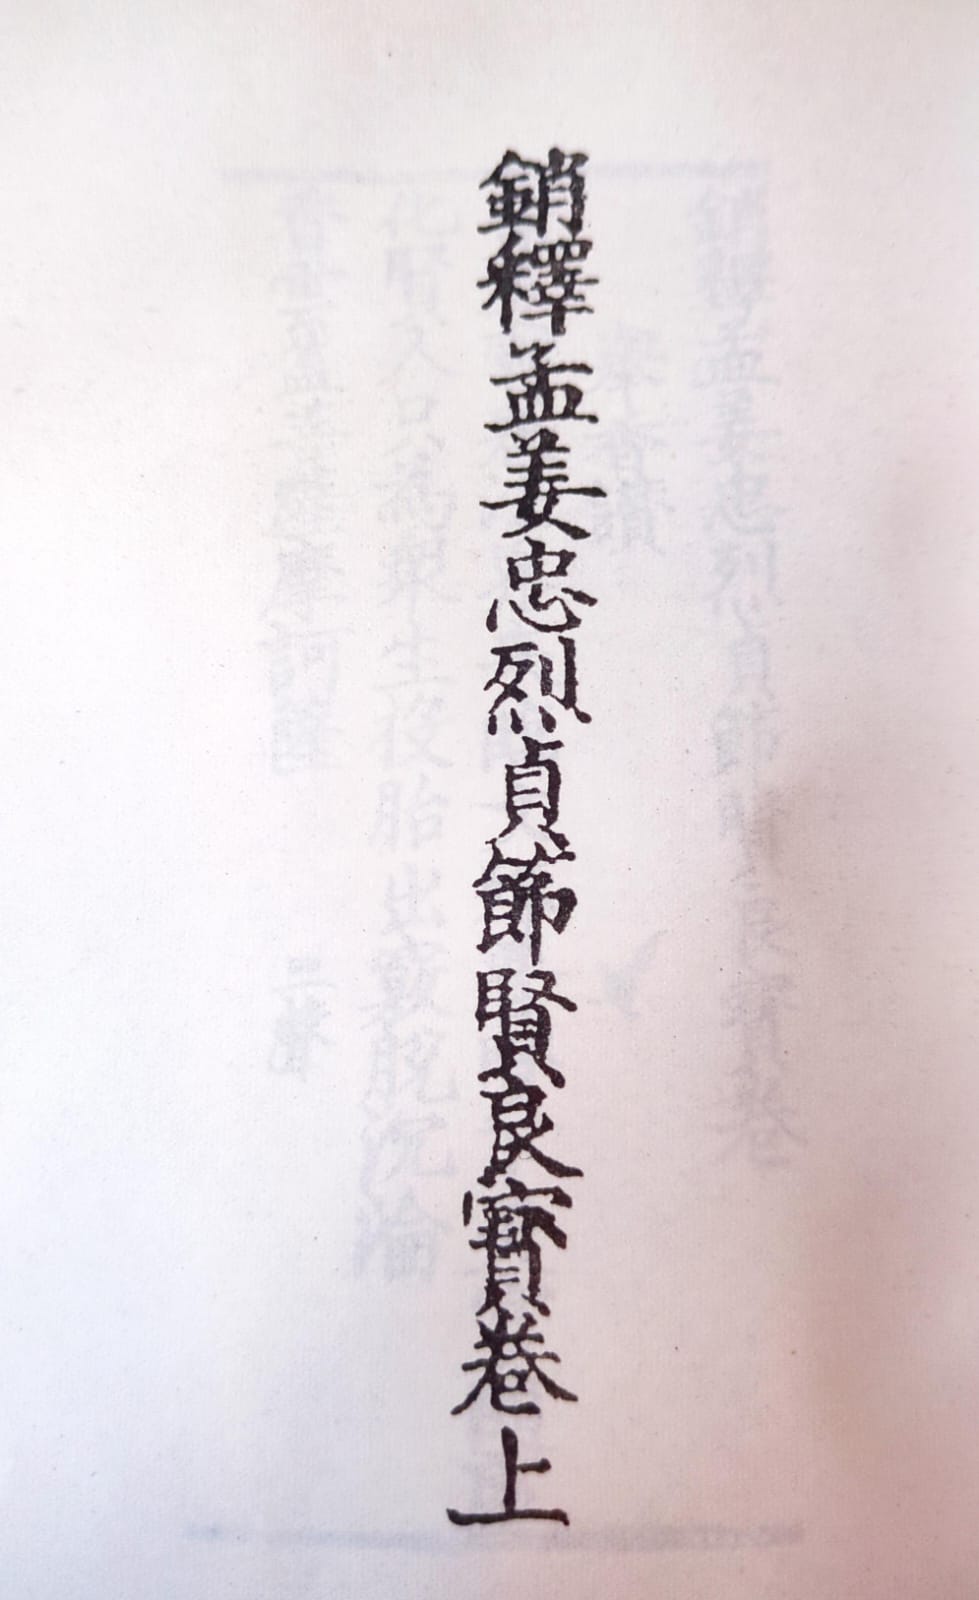 銷釋孟姜忠烈貞節賢良寳卷上